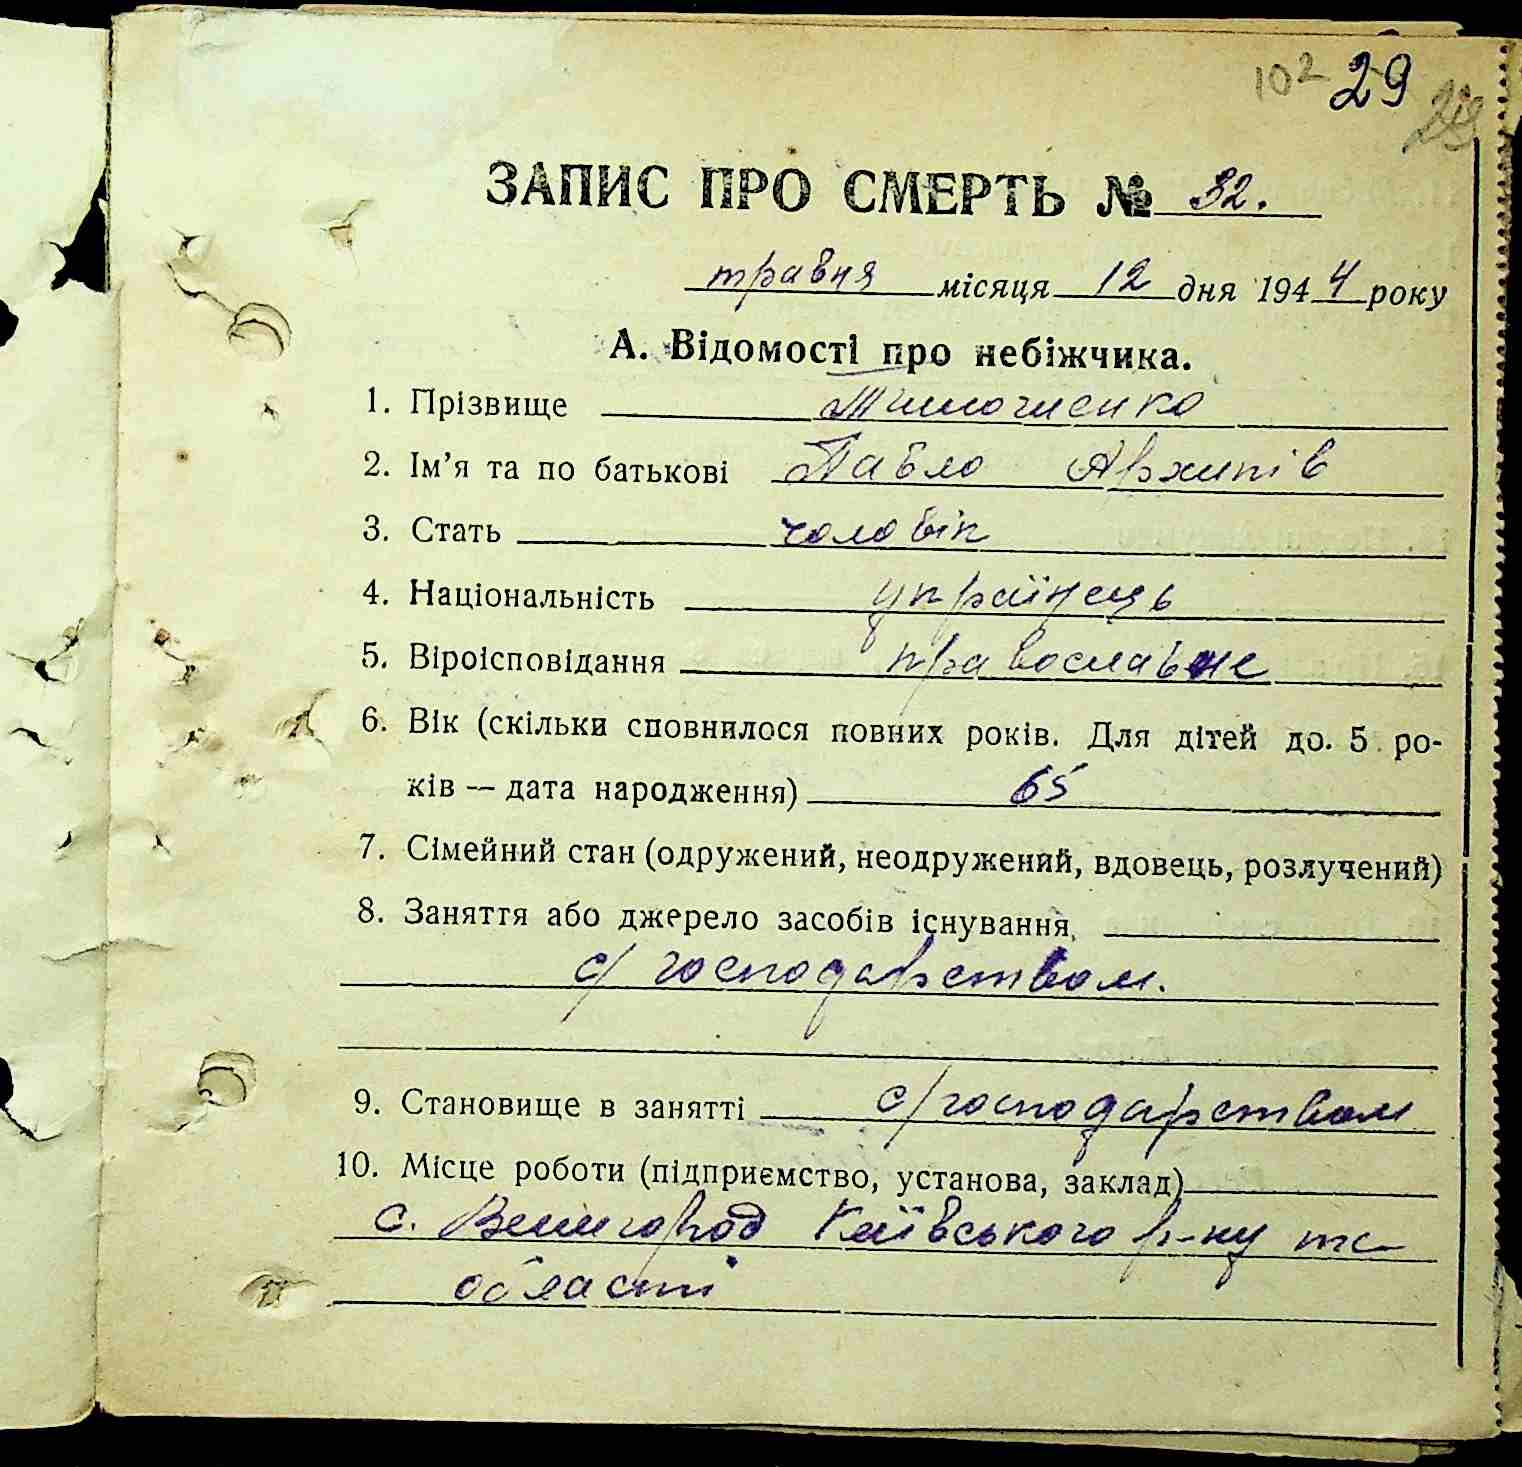 102 29
ЗАПИС ПРО СМЕРТЬ № 32.
травня місяця 12 дня 1944 року
А. Відомості про небіжчика.
1. Прізвище
2. Ім’я та по батькові Павло Архипів
3. Стать чоловік
4. Національність українець
5. Віроісповідання православне
6. Вік (скільки сповнилося повних років. Для дітей до 5 ро-
ків — дата народження) 65
7. Сімейний стан (одружений, неодружений, вдовець, розлучений)
8. Заняття або джерело засобів існування
с/господарством.
9. Становище в занятті с/господарством
10. Місце роботи (підприємство, установа, заклад)
с. Вишгород Київського р-ну та
області